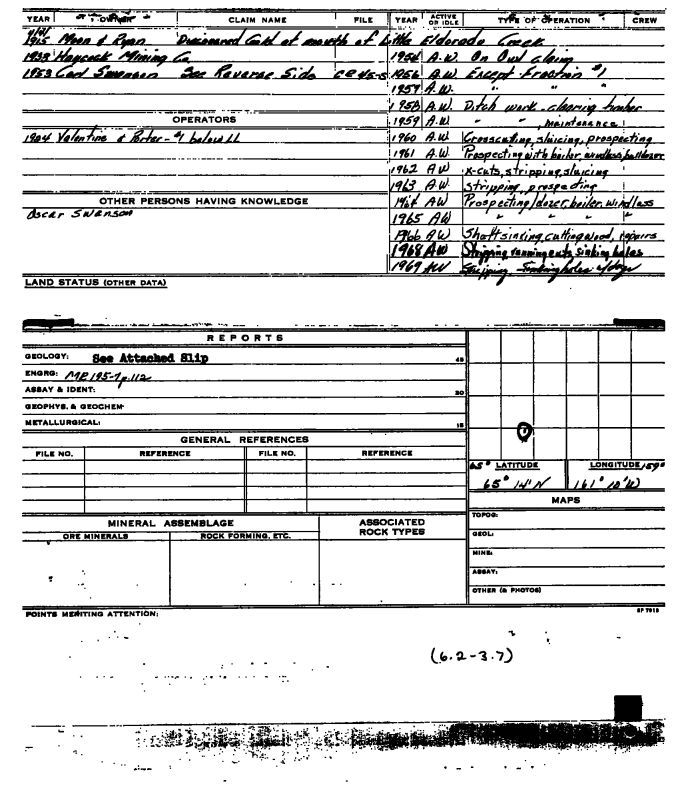 YEAR OWNER CLAIM NAME FILE YEAR ACTIVE OR IDLE TYPE OF OPERATION CREW
1915 Moon & Ryan Discovered Gold at mouth of Little Eldorado Creek
1939 Haycock Mining Co 1954 A.W. On Owl claim
1953 Carl Swanson See Reverse Side 1956 A.W. Except Fraction #1
1957 A.W. " "
1958 A.W. Ditch work - clearing timber
OPERATORS 1959 A.W. " " , maintenance
1924 Valentine & Porter - #1 below LL 1960 A.W. Crosscutting, sluicing, prospecting
1961 A.W. Prospecting with boiler, windlass, bulldozer
1962 A.W. x-cuts, stripping, sluicing
1963 A.W. Stripping, prospecting
OTHER PERSONS HAVING KNOWLEDGE 1964 AW Prospecting/dozer, boiler, windlass
Oscar Swanson 1965 AW " " "
1966 AW Shaft sinking, cutting wood, repairs
1968 AW Stripping, running cuts, sinking holes
1969 AW Stripping - Sinking holes w/dozer
LAND STATUS (OTHER DATA)
REPORTS
GEOLOGY: See Attached Slip 45
ENGRG: MR 195-7 p.112
ASSAY & IDENT: 20
GEOPHYS. & GEOCHEM-
METALLURGICAL: 15
GENERAL REFERENCES
FILE NO. REFERENCE FILE NO. REFERENCE
65° LATITUDE LONGITUDE 159°
65° 14' N 161° 10' W
MAPS
MINERAL ASSEMBLAGE ASSOCIATED ROCK TYPES
ORE MINERALS ROCK FORMING, ETC.
TOPOG:
GEOL:
MINE:
ASSAY:
OTHER (& PHOTOS)
POINTS MERITING ATTENTION:
(6.2-3.7)